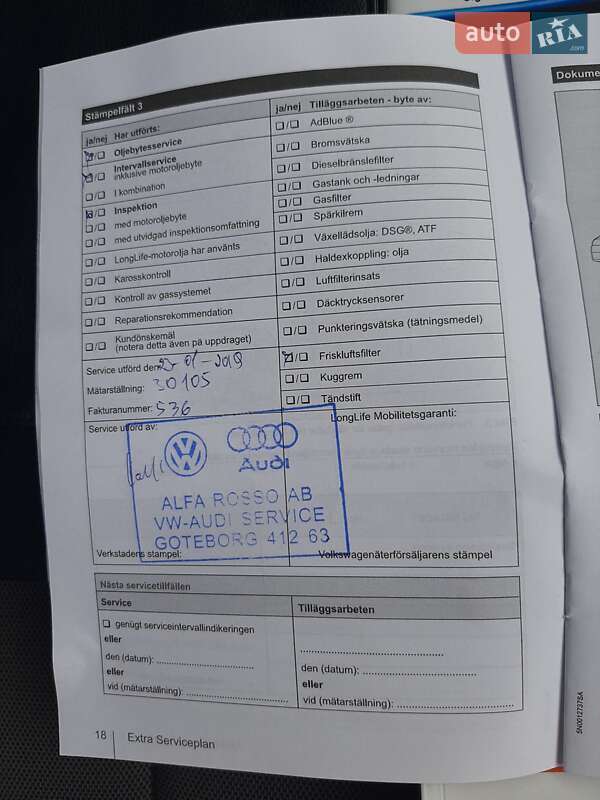 auto RIA .com
Stämpelfält 3
ja/nej Har utförts:
Oljebytesservice
Intervallservice
inklusive motoroljebyte
I kombination
Inspektion
med motoroljebyte
med utvidgad inspektionsomfattning
LongLife-motorolja har använts
Karosskontroll
Kontroll av gassystemet
Reparationsrekommendation
Kundönskemål
(notera detta även på uppdraget)
Service utförd den: 23-01-2019
Mätarställning: 30105
Fakturanummer: 536
Service utförd av:
ja/nej Tilläggsarbeten - byte av:
AdBlue ®
Bromsvätska
Dieselbränslefilter
Gastank och -ledningar
Gasfilter
Spärkilrem
Växellädsolja: DSG®, ATF
Haldexkoppling: olja
Luftfilterinsats
Däcktrycksensorer
Punkteringsvätska (tätningsmedel)
Friskluftsfilter
Kuggrem
Tändstift
LongLife Mobilitetsgaranti:
Audi
ALFA ROSSO AB
VW-AUDI SERVICE
GÖTEBORG 412 63
Verkstadens stämpel:
Volkswagenåterförsäljarens stämpel
Nästa servicetillfällen
Service
genügt serviceintervallindikeringen
eller
den (datum):
eller
vid (mätarställning):
Tilläggsarbeten
den (datum):
eller
vid (mätarställning):
18 Extra Serviceplan
Dokume
5N0012737SA